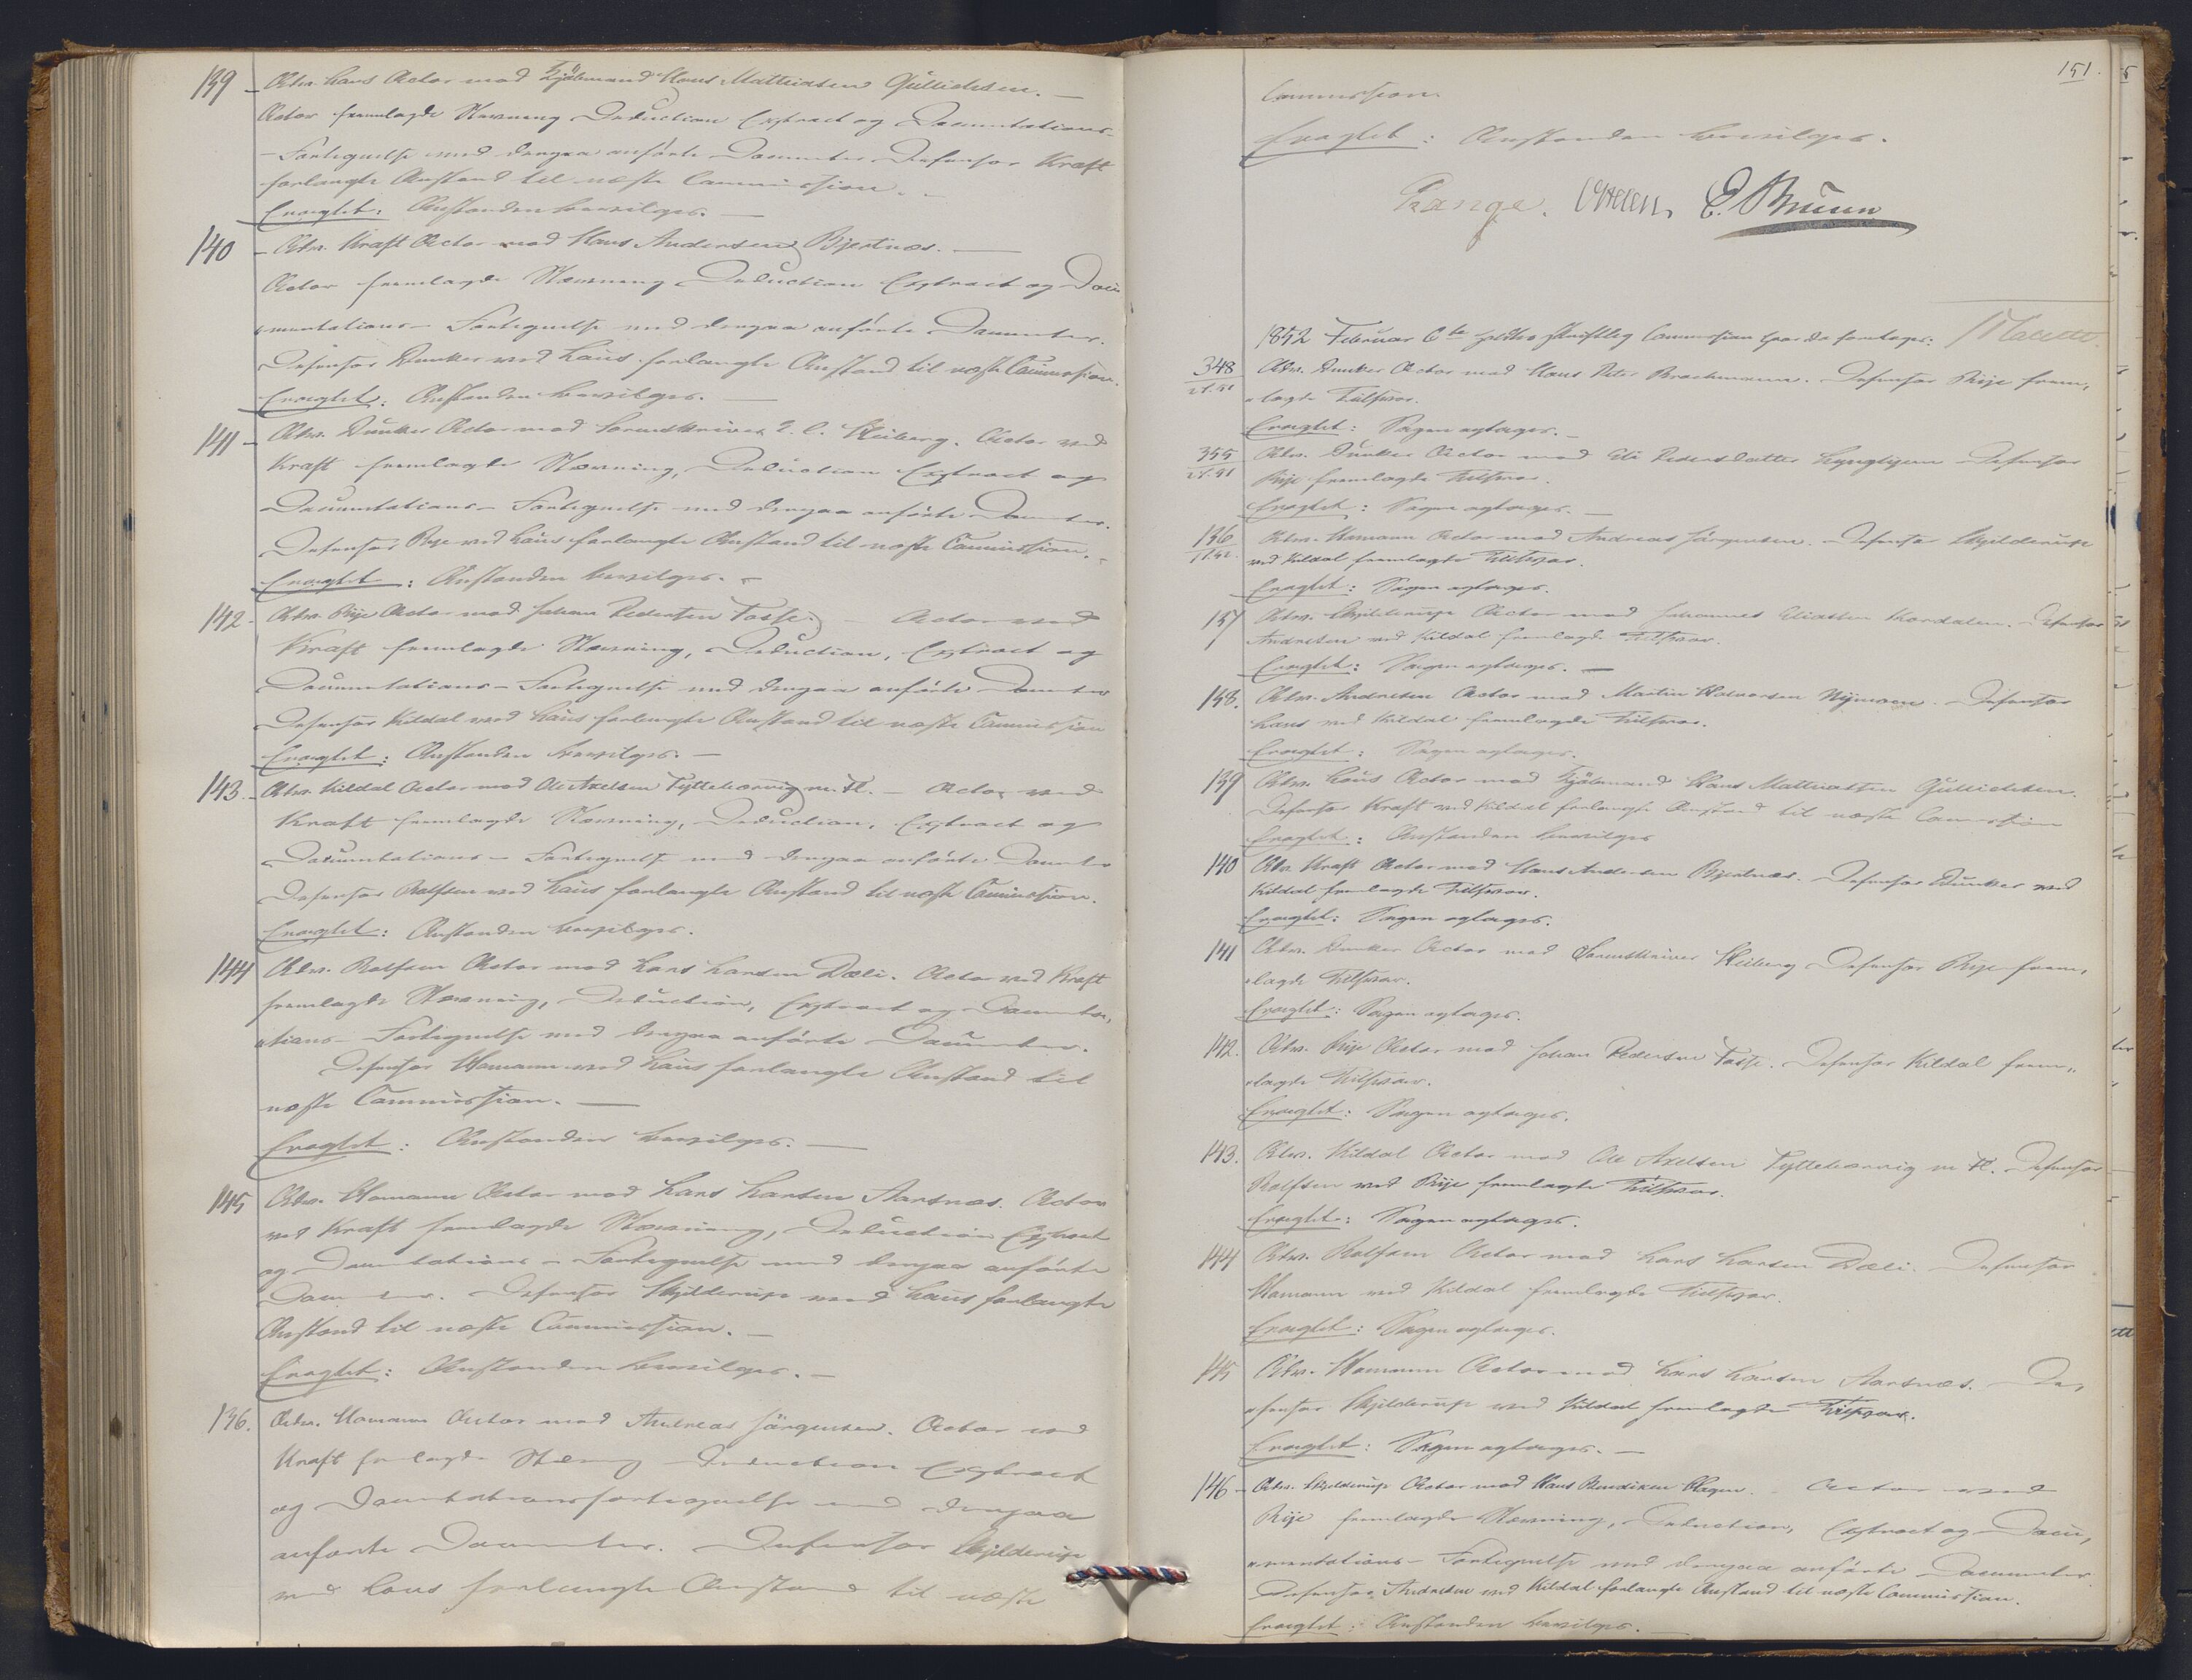 139 - Adv. Haus Actor mod Hans Mathiesen Gulliksen. -
Actor fremlagde Stævning Deduction Extract og Documentations
- Fortegnelse med derpaa anførte Documenter Defensor Kraft
forlangte Anstand til næste Commission. -
Eragtet: Anstanden bevilges. -
140 - Adv. Kraft Actor mod Hans Andersen Bjertnæs. -
Actor fremlagde Stævning Deduction Extract og Docu
mentations - Fortegnelse med derpaa anførte Documenter.
Defensor Dunker ved Haus forlangte Anstand til næste Commission.
Eragtet: Anstanden bevilges. -
141 - Adv. Dunker Actor mod Sorenskriver Heiberg. Actor ved
Kraft fremlagde Stævning, Deduction Extract og
Documentations - Fortegnelse med derpaa anførte Documenter.
Defensor Rije ved Haus forlangte Anstand til næste Commission. -
Eragtet: Anstanden bevilges. -
142 - Adv. Rije Actor mod Johan Pedersen Fosse. - Actor ved
Kraft fremlagde Stævning, Deduction, Extract og
Documentations - Fortegnelse med derpaa anførte Documenter
Defensor Kildal ved Haus forlangte Anstand til næste Commission
Eragtet: Anstanden bevilges. -
143 - Adv. Kildal Actor mod Ole Axelsen m. Fl. - Actor ved
Kraft fremlagde Stævning, Deduction, Extract og
Documentations - Fortegnelse med derpaa anførte Documenter
Defensor Rolfsen ved Haus forlangte Anstand til næste Commission.
Eragtet: Anstanden bevilges.
144 Adv. Rolfsen Actor mod Lars Larsen Dæli. Actor ved Kraft
fremlagde Stævning, Deduction, Extract og Documenta
tions - Fortegnelse med derpaa anførte Documenter.
Defensor Homann ved Haus forlangte Anstand til
næste Commission. -
Eragtet: Anstanden bevilges. -
145 Adv. Homann Actor mod Lars Larsen Aarsnæs. Actor
ved Kraft fremlagde Stævning, Deduction Extract
og Documentations - Fortegnelse med derpaa anførte
Documenter. Defensor Hjelderup ved Haus forlangte
Anstand til næste Commission. -
Eragtet: Anstanden bevilges. -
136. Adv. Homann Actor mod Andreas Jörgensen. Actor ved
Kraft fremlagde Stævning Deduction Extract
og Documentationsfortegnelse med derpaa
anførte Documenter. Defensor Hjelderup
ved Haus forlangte Anstand til næste
151.
Commission
Eragtet: Anstanden bevilges.
E. Bruun
1852 Februar 6te holdtes skriftlig Commission hvor da foretoges:
348 Adv. Dunker Actor mod Hans Peter Brockmann. Defensor Rije frem,
lagde Tilsvar.
Eragtet: Sagen optages. -
355 Adv. Dunker Actor mod Eli Pedersdatter Defensor
Rije fremlagde Tilsvar.
Eragtet: Sagen optages. -
136 Adv. Homann Actor mod Andreas Jörgensen. - Defensor Hjelderup
ved Kildal fremlagde Tilsvar.
Eragtet: Sagen optages.
137 Adv. Hjelderup Actor mod Johannes Eliassen Kordalen. Defensor
Andresen ved Kildal fremlagde Tilsvar.
Eragtet: Sagen optages. -
138. Adv. Andresen Actor mod Martin Halvorsen Nijmoen. Defensor
Haus ved Kildal fremlagde Tilsvar.
Eragtet: Sagen optages.
139 Adv. Haus Actor mod Hans Mathiesen Gulliksen.
Defensor Kraft ved Kildal forlangte Anstand til næste Commission
Eragtet: Anstanden bevilges
140 Adv. Kraft Actor mod Hans Andersen Bjertnæs. Defensor Dunker ved
Kildal fremlagde Tilsvar.
Eragtet: Sagen optages.
141 Adv. Dunker Actor mod Sorenskriver Heiberg Defensor Rije frem,
lagde Tilsvar.
Eragtet: Sagen optages.
142. Adv. Rije Actor mod Johan Pedersen Fosse. Defensor Kildal frem,,
lagde Tilsvar.
Eragtet: Sagen optages.
143. Adv. Kildal Actor mod Ole Axelsen m Fl. Defensor
Rolfsen ved Rije fremlagde Tilsvar.
Eragtet: Sagen optages.
144 Adv. Rolfsen Actor mod Lars Larsen Dæli. Defensor
Homann ved Kildal fremlagde Tilsvar.
Eragtet: Sagen optages.
145 Adv. Homann Actor mod Lars Larsen Aarsnæs. De,
fensor Hjelderup ved Kildal fremlagde Tilsvar.
Eragtet: Sagen optages. -
146 - Adv. Hjelderup Actor mod Hans Bendixen Hagen. Actor ved
Rije fremlagde Stævning, Deduction, Extract og Docu,
mentations - Fortegnelse med derpaa anførte Documenter.
Defensor Andresen ved Kildal forlangte Anstand til næste Commission.
Eragtet: Anstanden bevilges. -